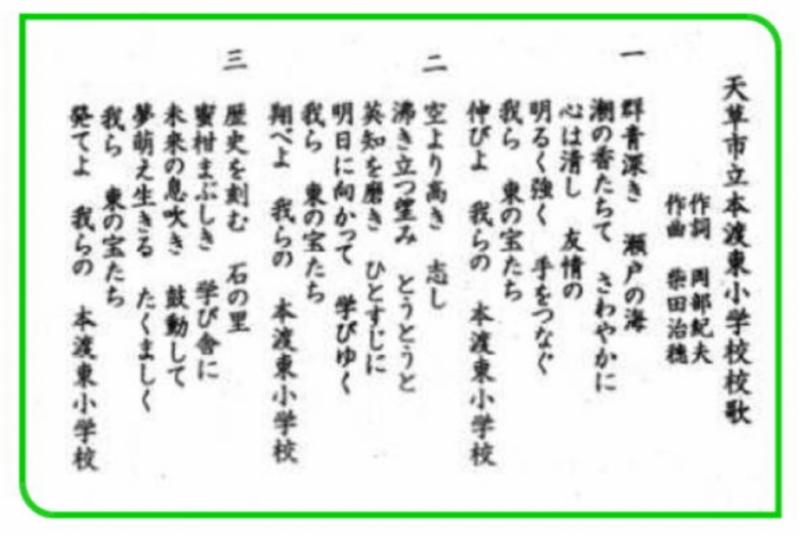 天草市立本渡東小学校校歌
作詞 岡部紀夫
作曲 柴田治穂
一
群青深き 瀬戸の海
潮の香たちて さわやかに
心は清し 友情の
明るく強く 手をつなぐ
我ら 東の宝たち
伸びよ 我らの 本渡東小学校
二
空より高き 志し
沸き立つ望み とうとうと
英知を磨き ひとすじに
明日に向かって 学びゆく
我ら 東の宝たち
翔べよ 我らの 本渡東小学校
三
歴史を刻む 石の里
蜜柑まぶしき 学び舎に
未来の息吹き 鼓動して
夢萌え生きる たくましく
我ら 東の宝たち
発てよ 我らの 本渡東小学校